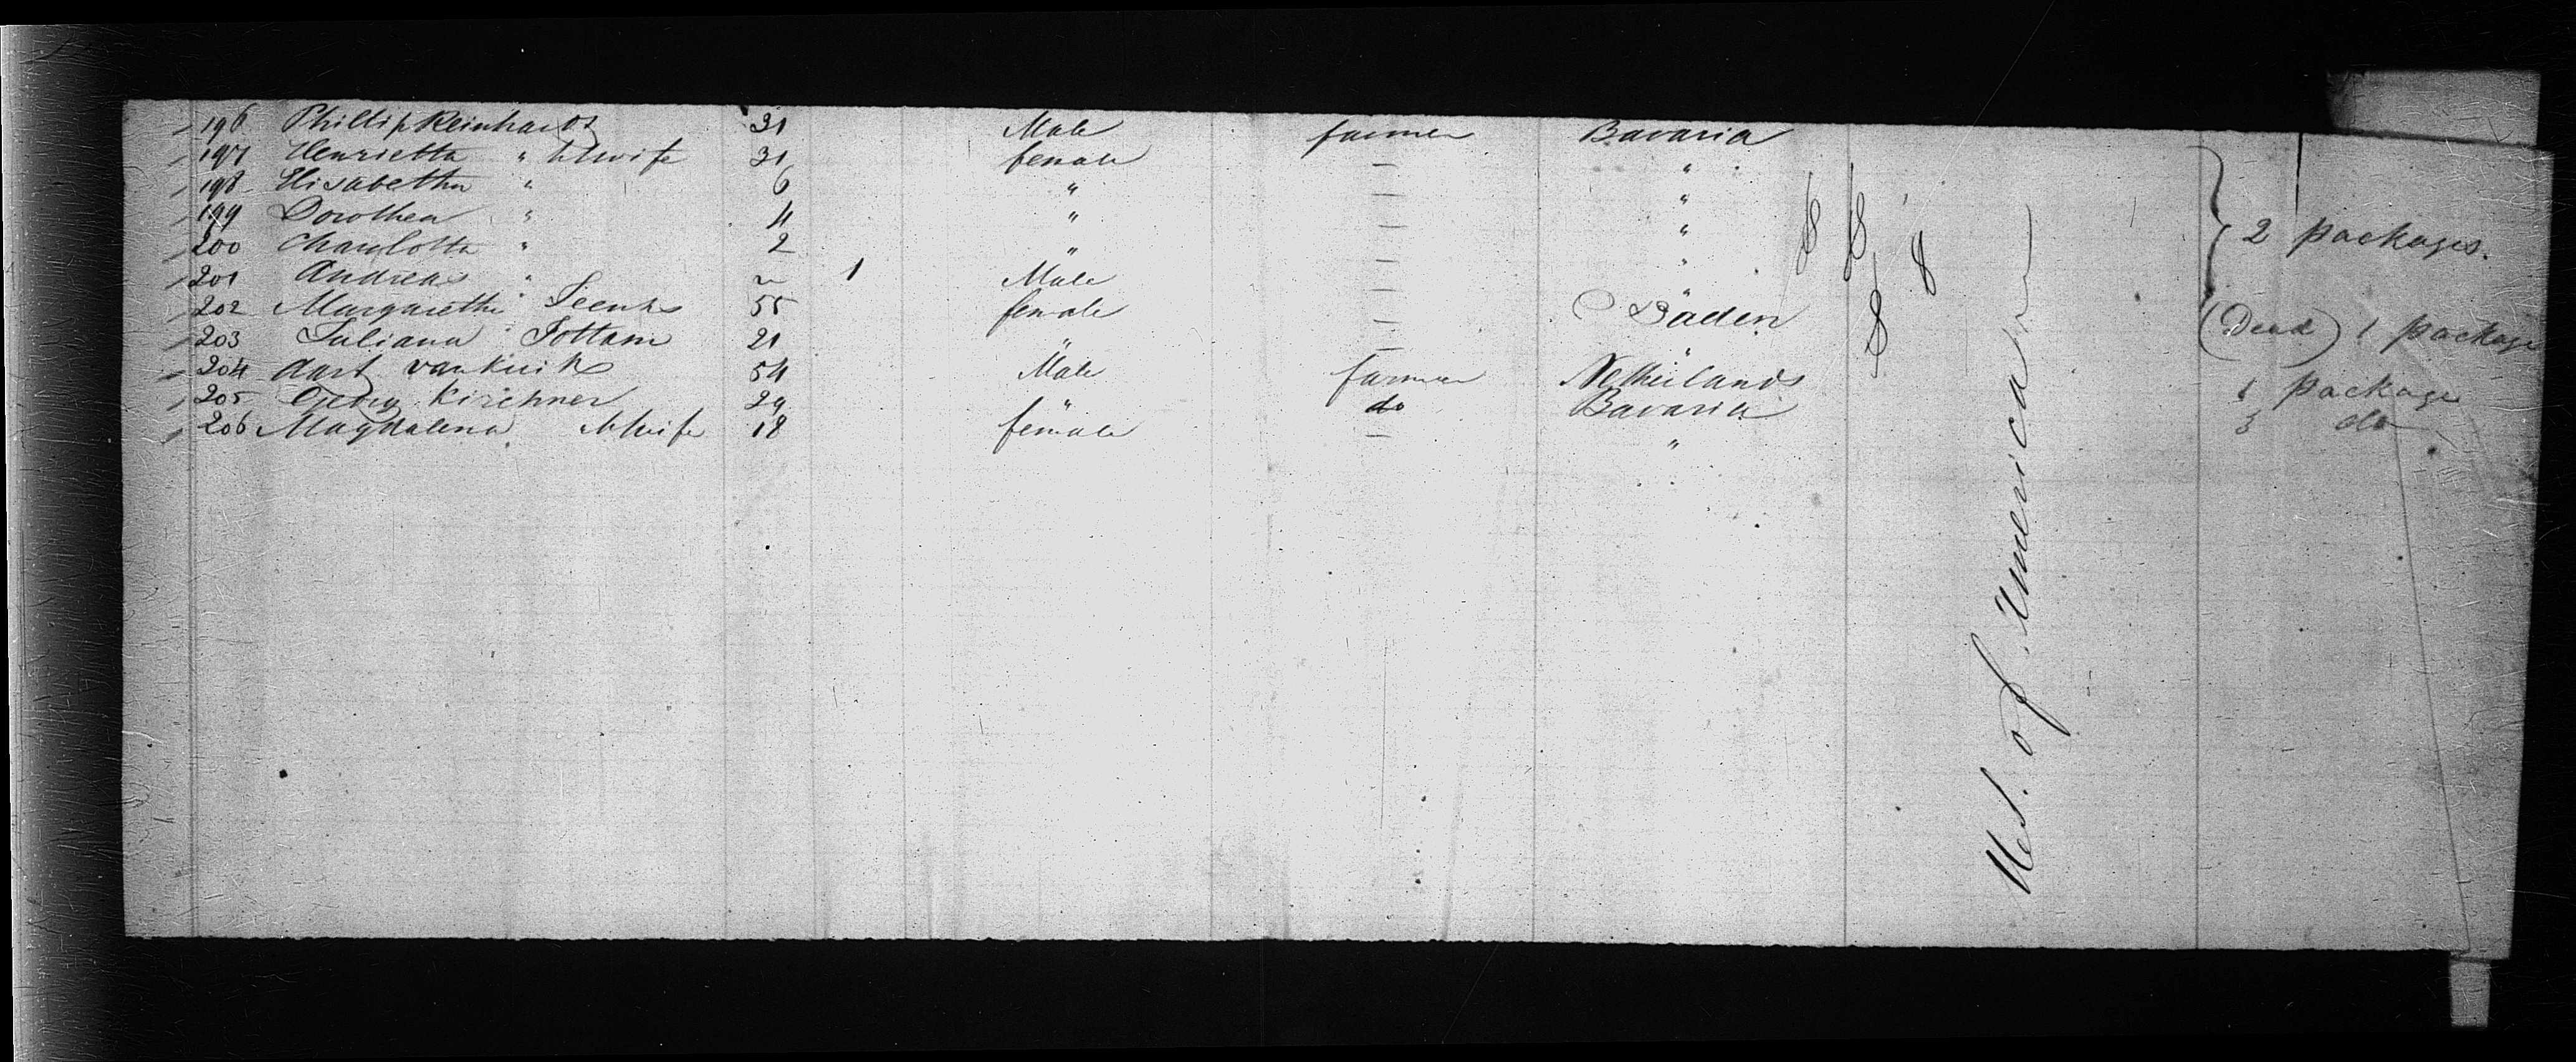 196 Phillip Reinhardt 31 Male farmer Bavaria
197 Henrietta " wife 31 female — "
198 Elisabetha " 6 " — "
199 Dorothea " 4 " — "
200 Charlotta " 2 " — " 2 packages.
201 Andreas " 1 Male — "
202 Margaretha 55 female — Baden (Dead) 1 package
203 Juliana 21 " — "
204 Aart van 54 Male farmer Netherlands 1 package
205 Georg Kirchner 29 " do Bavaria 3 do
206 Magdalena wife 18 female — "
U.S. of America